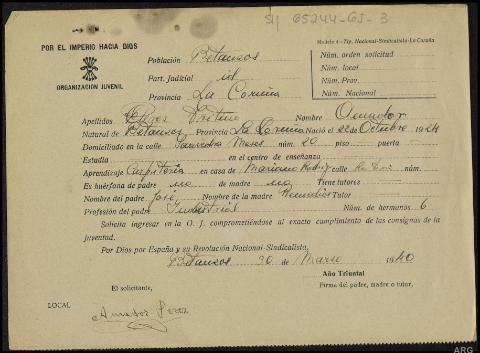 SH 65244-GJ-3
POR EL IMPERIO HACIA DIOS
ORGANIZACIÓN JUVENIL
Modelo 4 - Tip. Nacional-Sindicalista - La Coruña
Núm. orden solicitud
Núm. local
Núm. Prov.
Núm. Nacional
Población Betanzos
Part. Judicial id
Provincia La Coruña
Apellidos Nombre Amador
Natural de Betanzos Provincia La Coruña Nació el 22 de Octubre 1924
Domiciliado en la calle núm. 20 piso puerta
Estudia en el centro de enseñanza
Aprendizaje Carpintería en casa de Mariano calle núm.
Es huérfano de padre no de madre no Tiene tutores
Nombre del padre José Nombre de la madre Remedios Tutor
Profesión del padre Industrial Núm. de hermanos 6
Solicita ingresar en la O. J. comprometiéndose al exacto cumplimiento de las consignas de la
juventud.
Por Dios por España y su Revolución Nacional-Sindicalista.
Betanzos 30 de Marzo 1940
Año Triunfal
El solicitante,
Firma del padre, madre o tutor,
LOCAL
Amador Perez
ARG